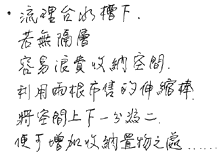 • 流理台水槽下.
若無隔層
容易浪費收納空間.
利用兩根市售的伸縮棒.
將空間上下一分為二.
便可增加收納置物之處......